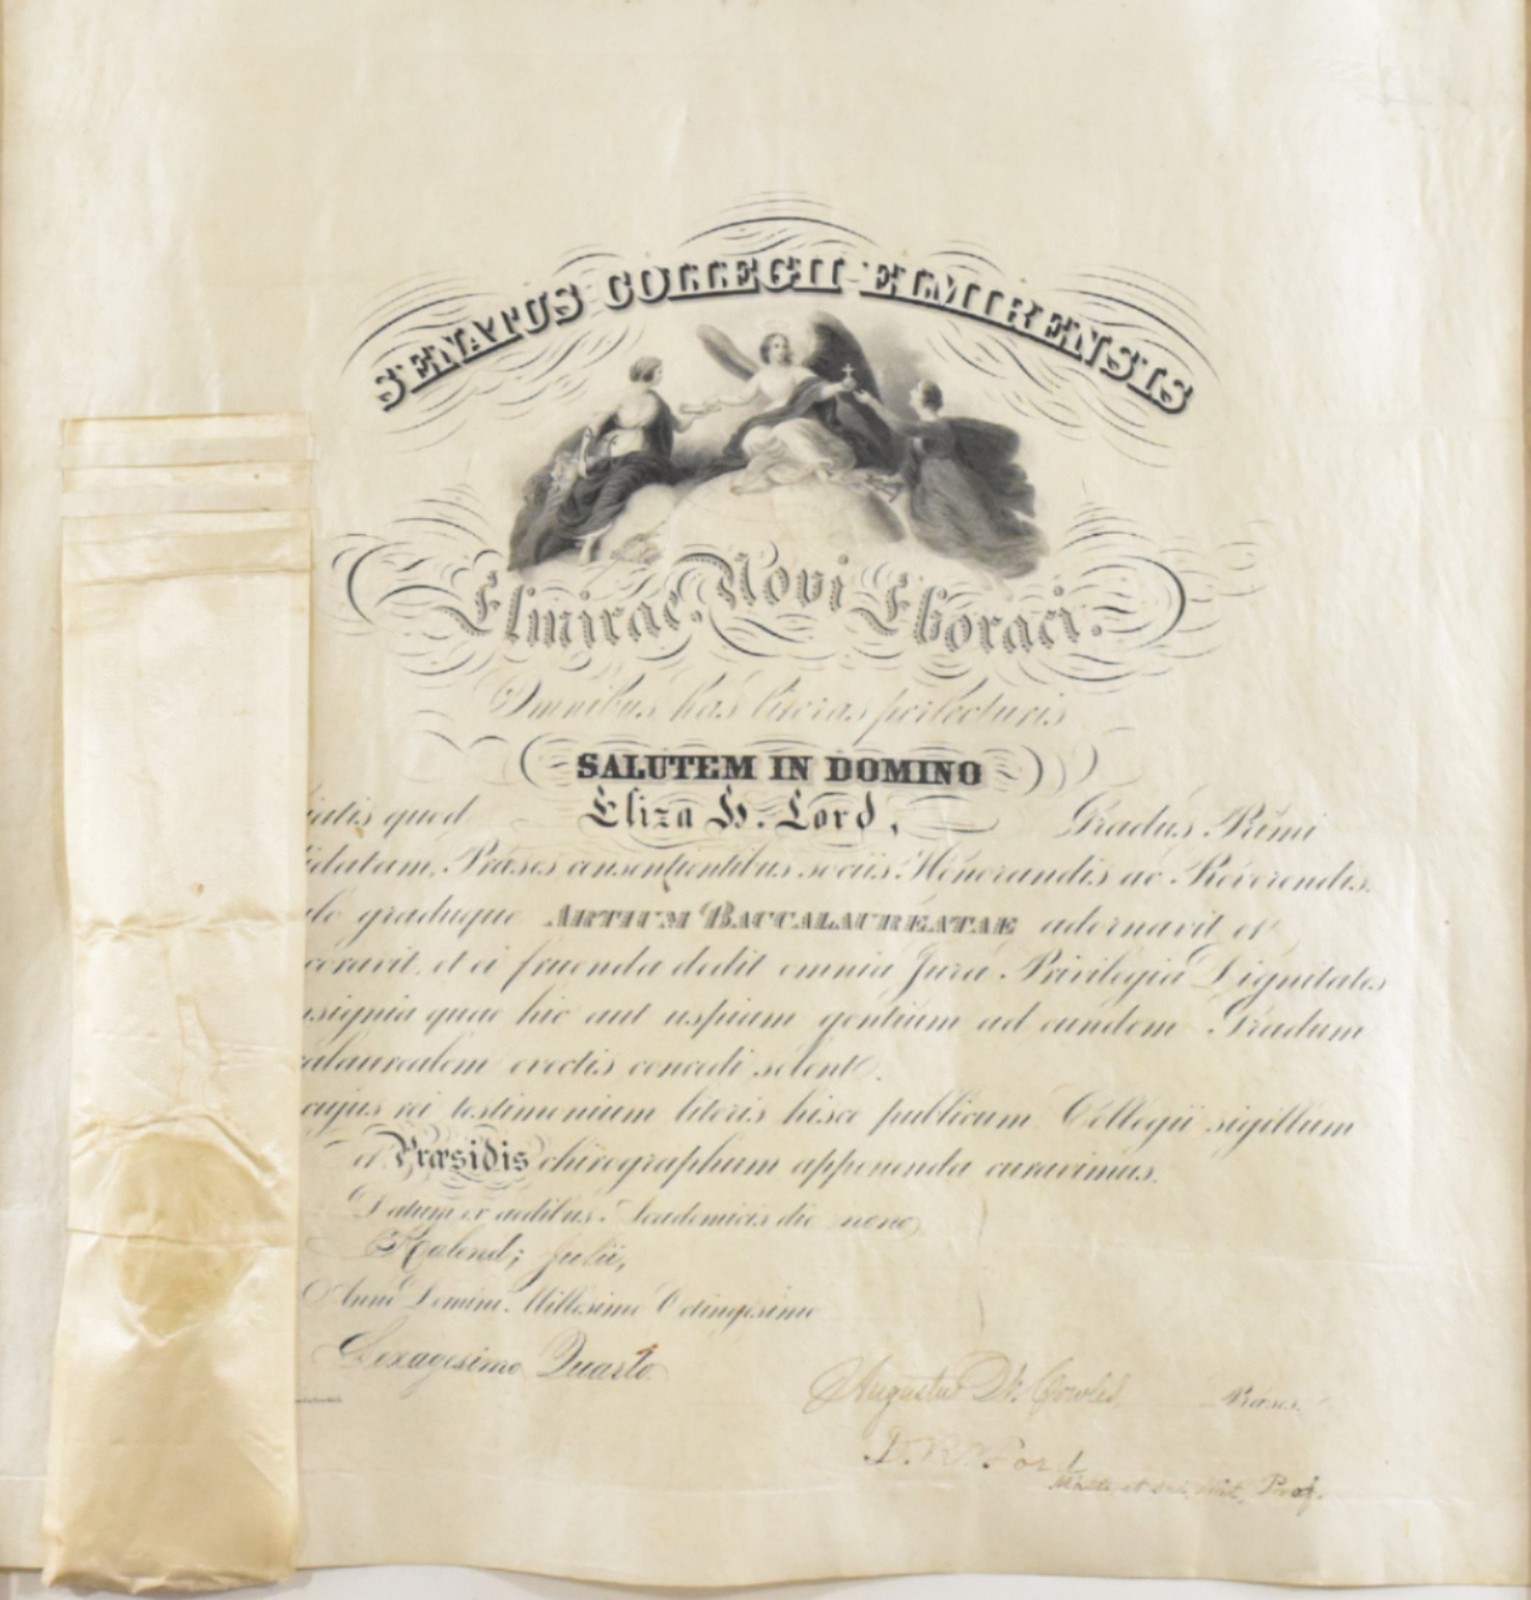 SENATUS COLLEGII ELMIRENSIS
Elmirae. Novi Eboraci.
Omnibus has literas perlecturis
SALUTEM IN DOMINO
iatis quod Eliza H. Lord, Gradus Primi
didatam, Præses consentientibus sociis Honorandis ac Reverendis,
ulo graduque ARTIUM BACCALAUREATAE adornavit et
coravit, et ei fruenda dedit omnia Jura Privilegia Dignitates
nsignia quae hic aut uspiam gentium ad eundem Gradum
alaureatem evectis concedi solent.
cujus rei testimonium literis hisce publicum Collegii sigillum
et Præsidis chirographum apponenda curavimus.
Datum ex aedibus Academicis die nono
Kalend; Julii,
Anno Domini Millesimo Octingesimo
Sexagesimo Quarto
Augustus W. Cowles, Præses.
D. R. Ford
et Prof.